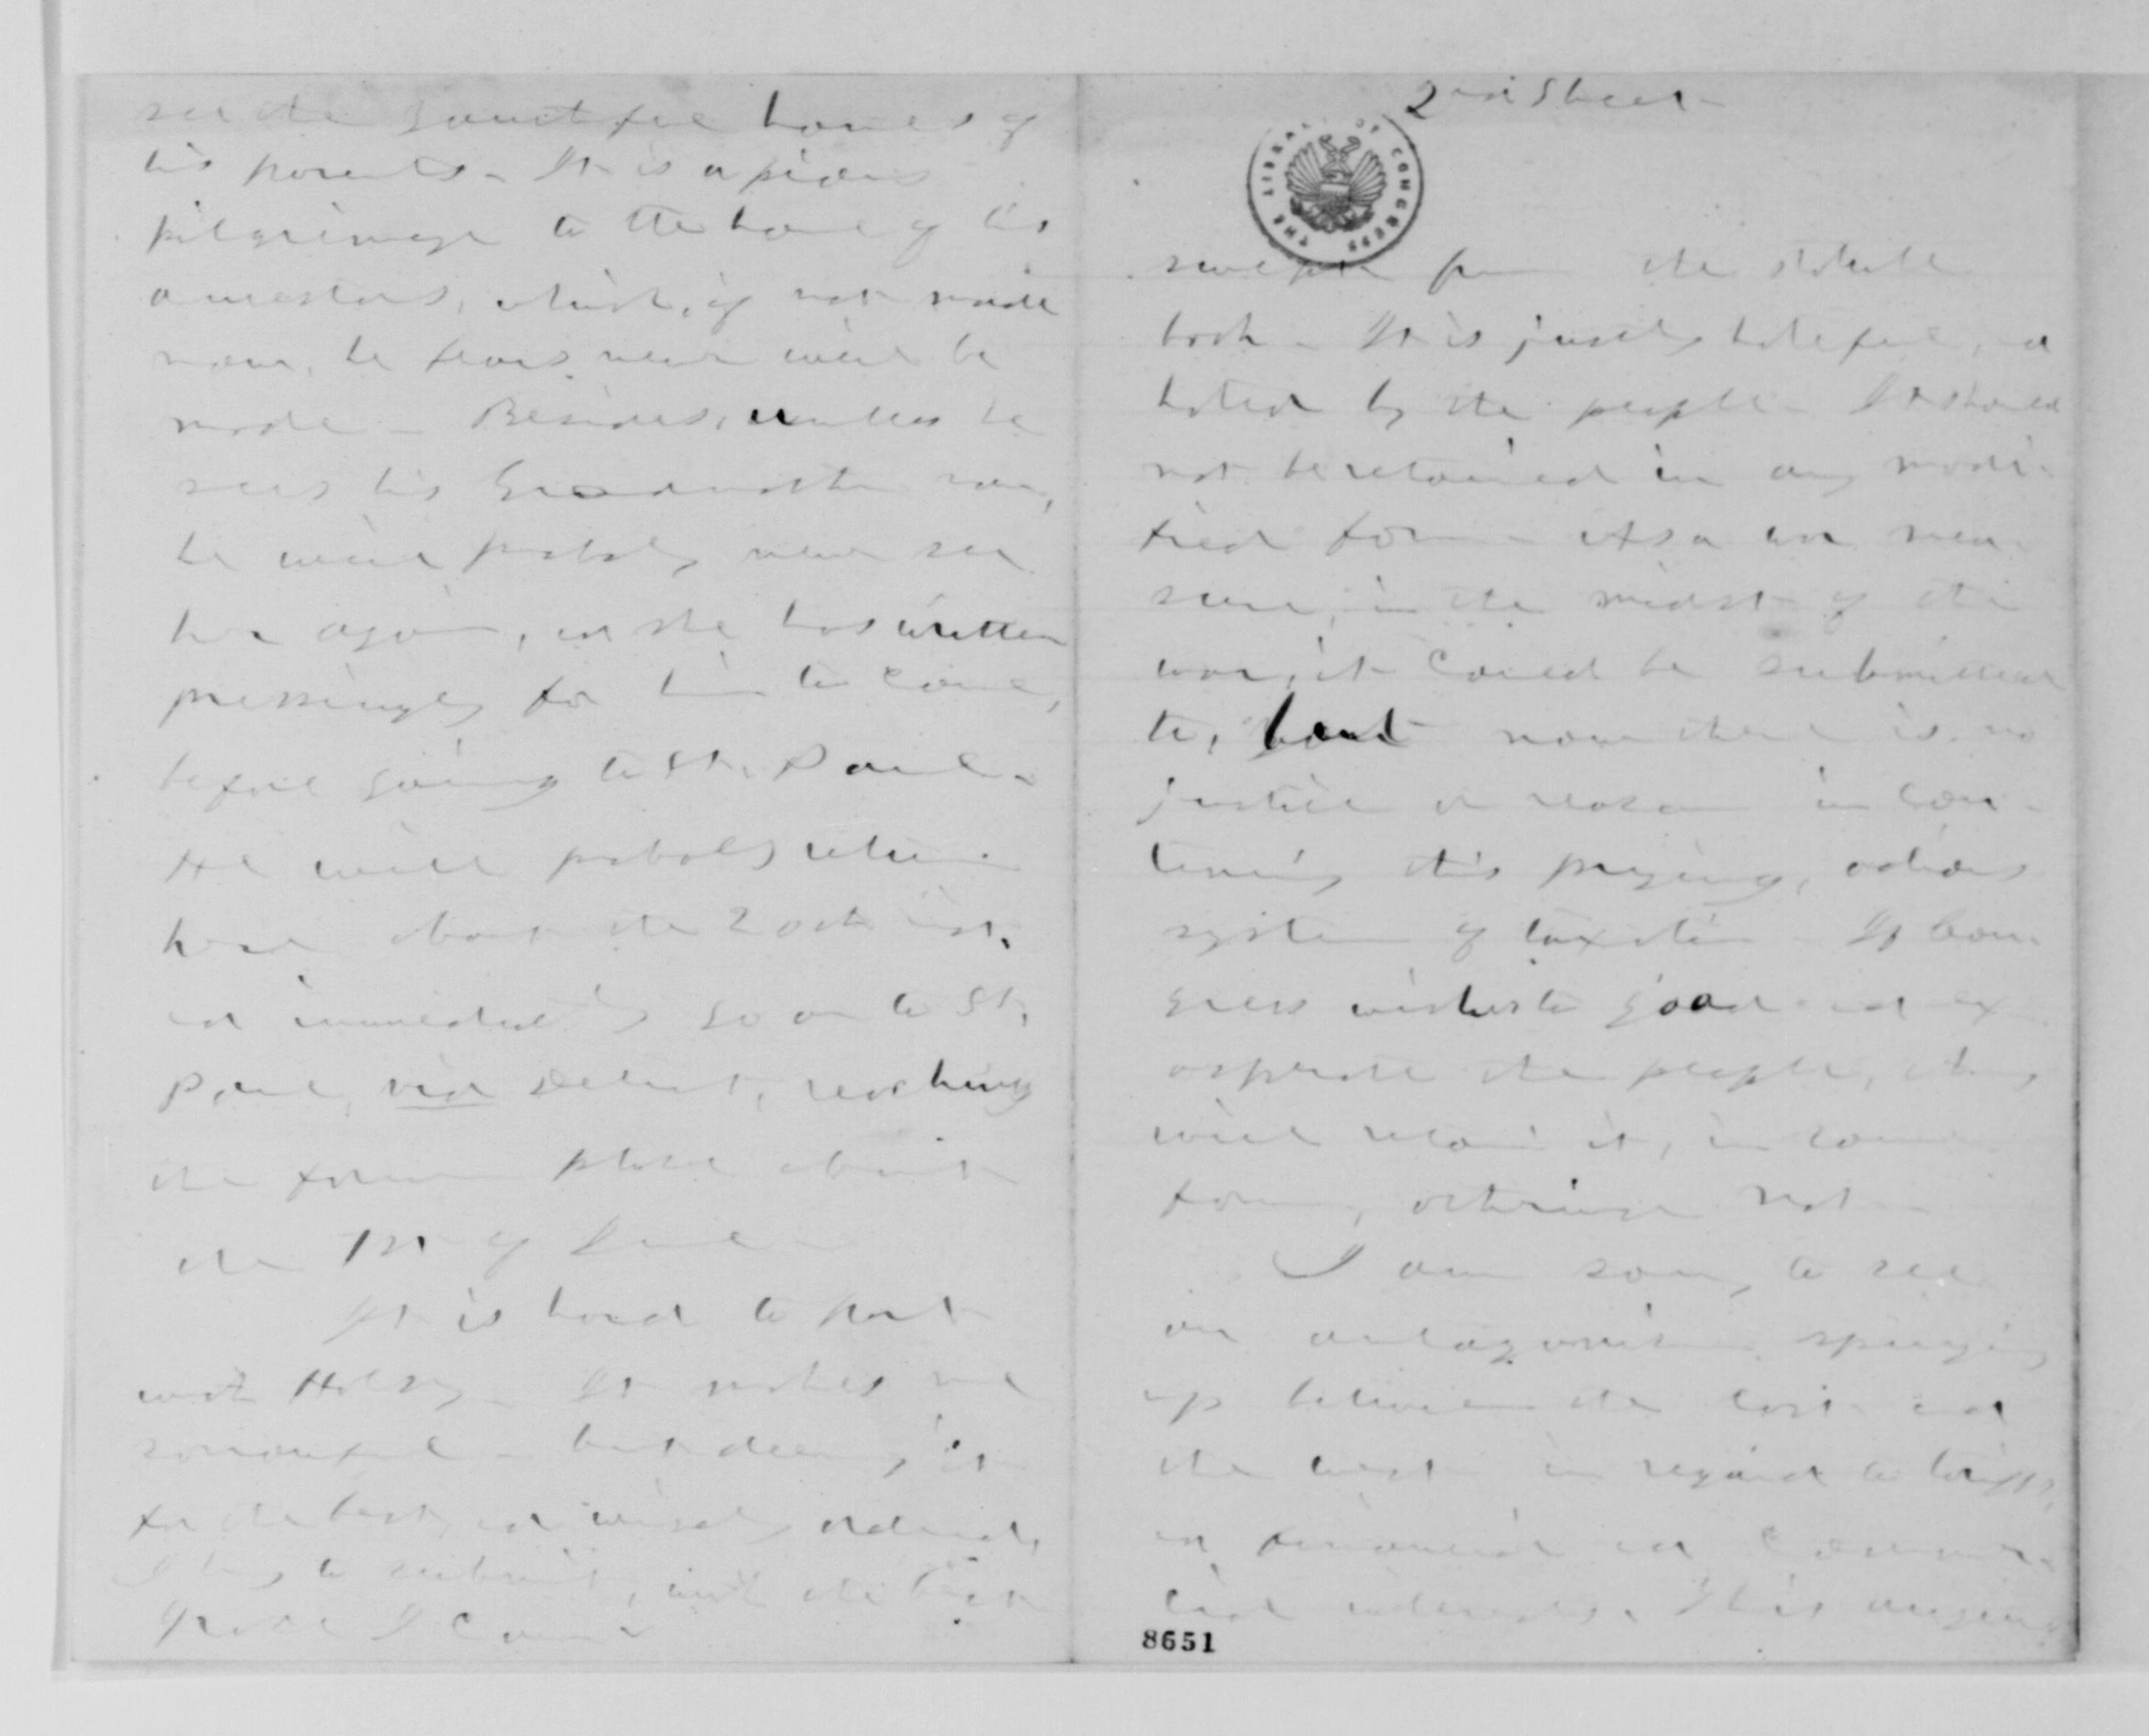 see the youthful homes of
his parents - It is a pious
pilgrimage to the home of his
ancestors, which, if not made
now, he fears never will be
made - Besides, unless he
sees his Grandmother now,
he will probably never see
her again, and she has written
pressingly for him to come,
before going to St. Paul -
He will probably return
here about the 20th inst.
and immediately go on to St.
Paul, via Detroit, reaching
the former place about
the 1st of June -
It is hard to part
with Halsey - It makes me
sorrowful - but deeming it
for the best, and wisely ordered,
I try to submit, with the best
grace I can -
2nd Sheet -
THE LIBRARY OF CONGRESS
swept from the statute
book - It is justly hateful, and
hated by the people - It should
not be retained in any modi-
fied form - As a war mea-
sure, in the midst of the
war, it could be submitted
to, but now there is no
justice or reason in con-
tinuing this prying, odious
system of taxation - If Con-
gress wishes to goad and ex-
asperate the people, they
will retain it, in some
form, otherwise not -
I am sorry to see
an antagonism springing
up between the East and
the West in regard to tariffs,
and financial and commer-
cial interests. This
8651